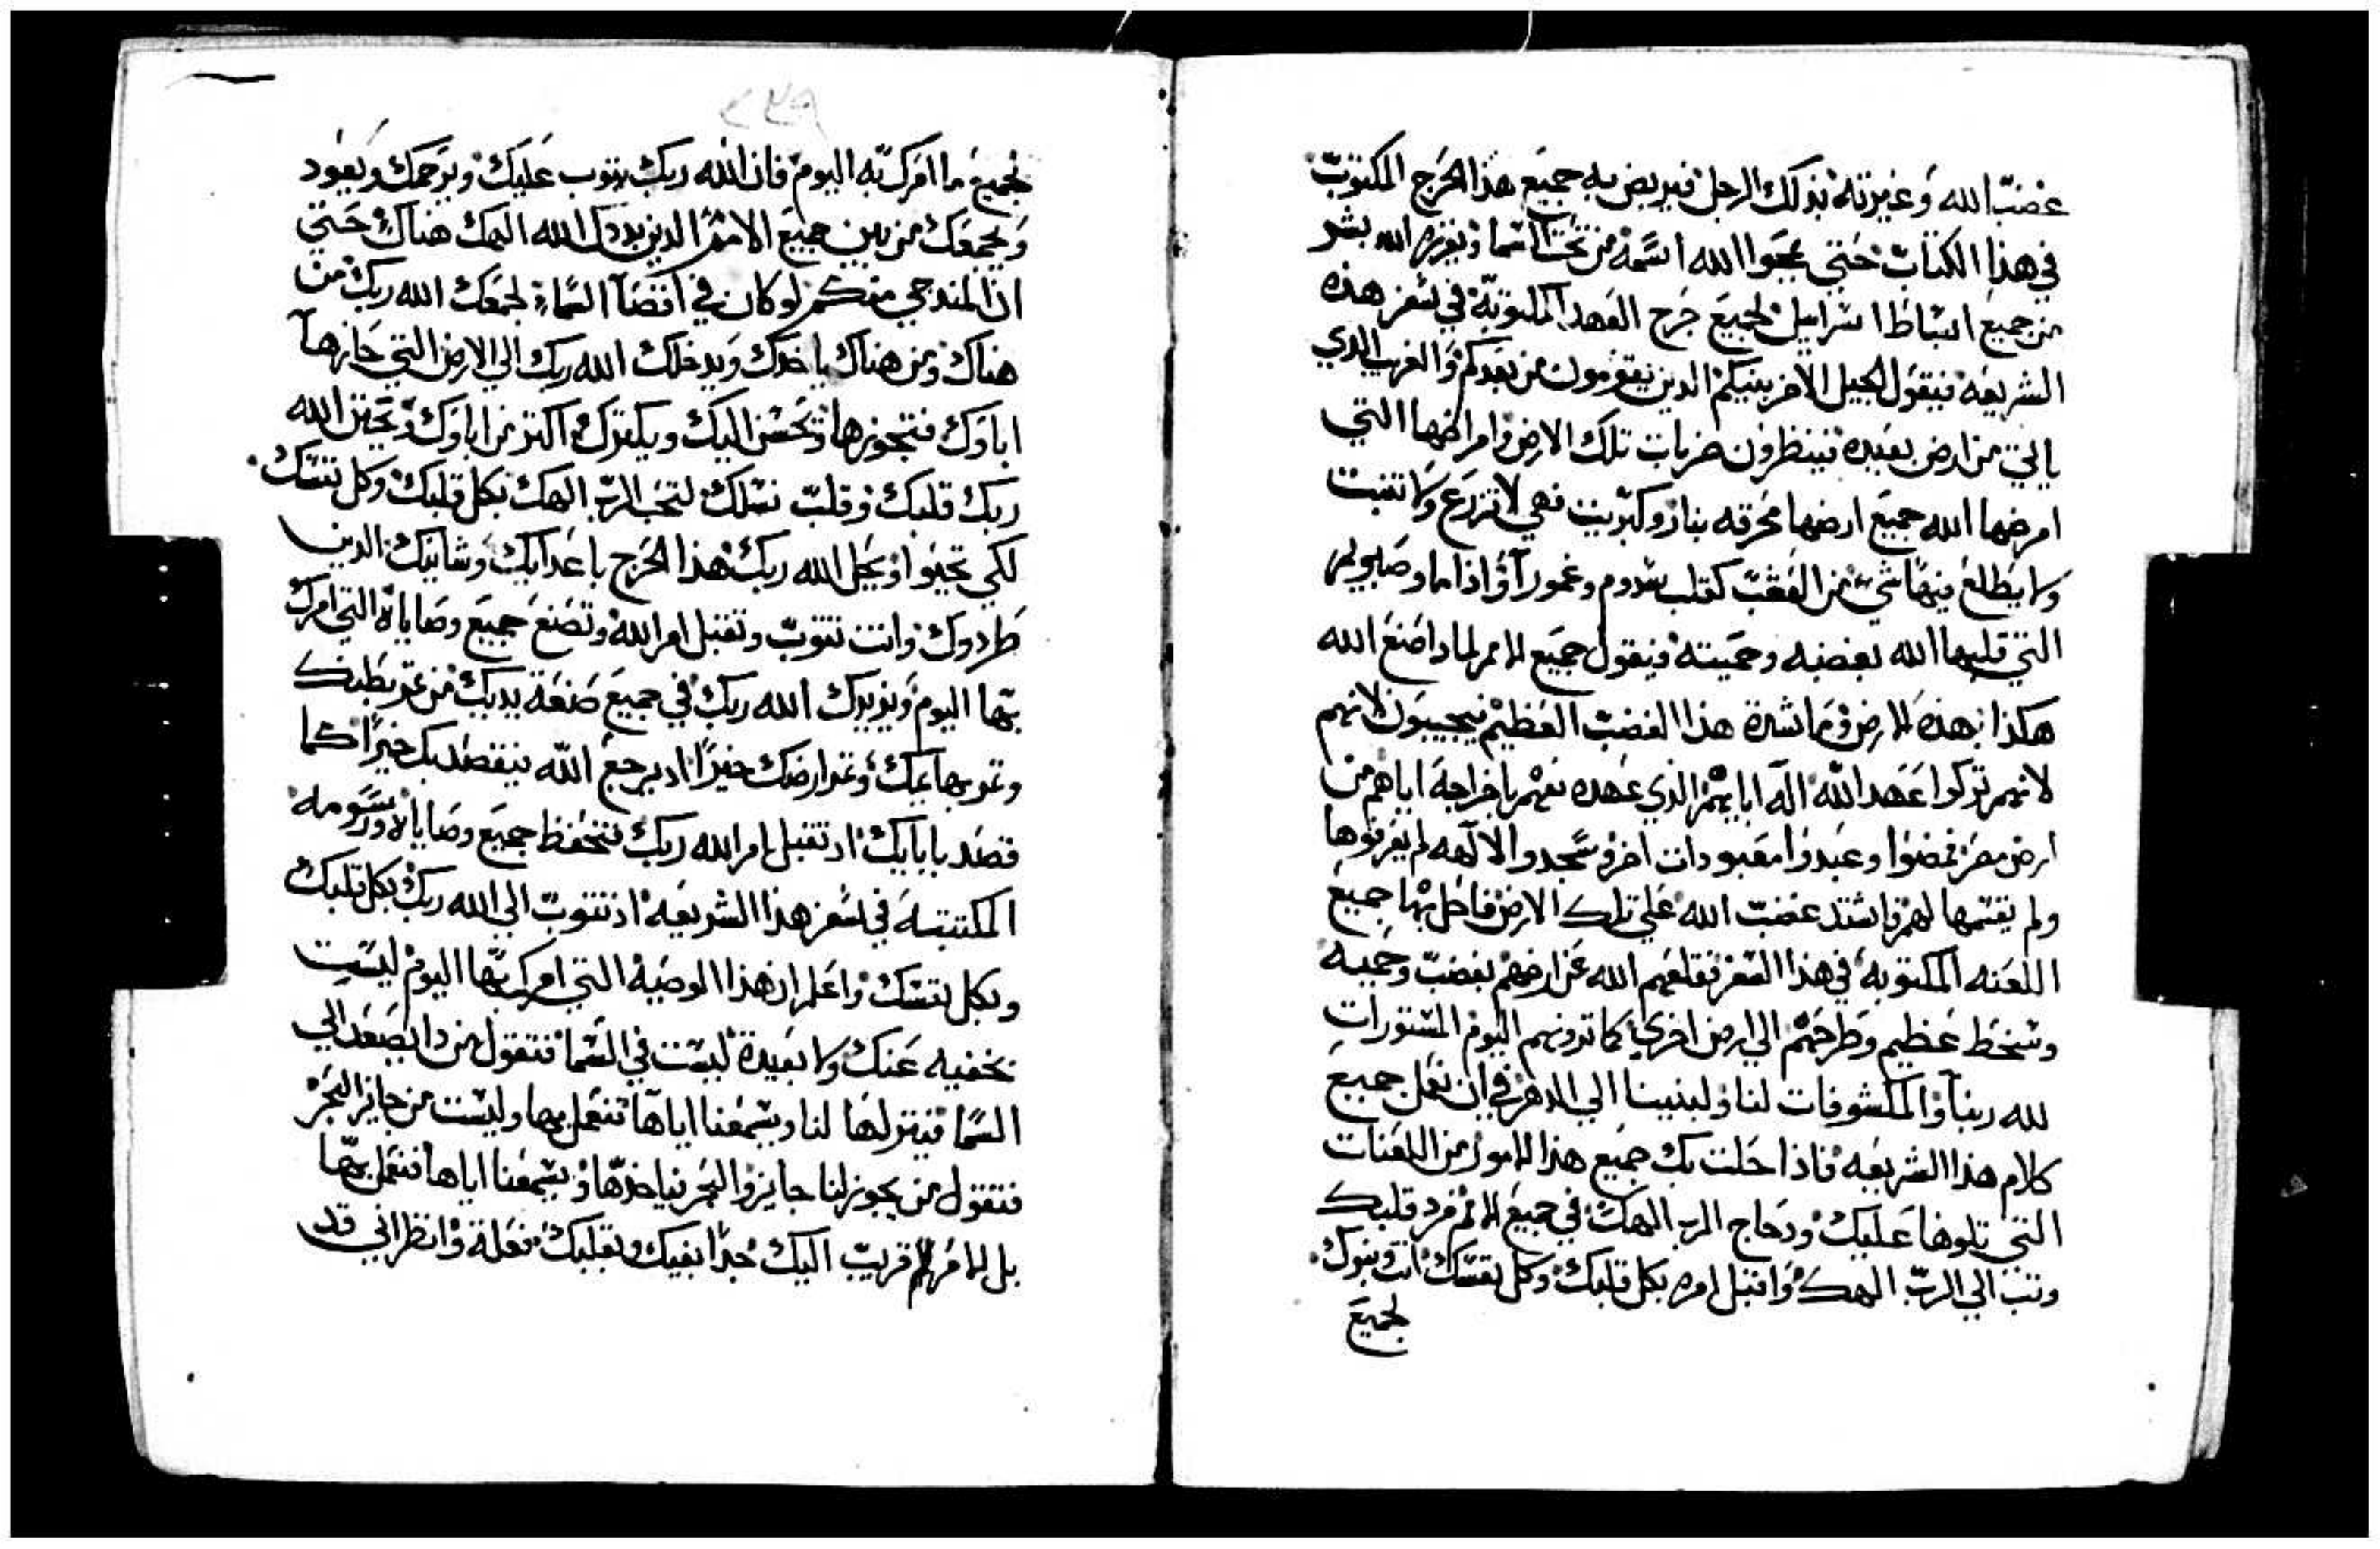 غضب الله وغيرته بذلك الرجل فيربض به جميع هذا الحرج المكتوب
في هذا الكتاب حتي يمحوا الله اسمه من تحت السما ويفرزه الله بشر
من جميع اسباط اسراييل لجميع حرج العهد المكتوبة في سفر هذه
الشريعه فيقول الجيل الاخر بنيكم الدين يقومون من بعدكم والغريب الدي
ياتي من ارض بعيده فينظرون ضربات تلك الارض وامراضها التي
امرضها الله جميع ارضها محرقه بنار وكبريت فهي لا تزرع ولا تنبت
ولا يطلع فيها شي من العشب كقلب سدوم وعمورا واذاما وصابويم
التي قلبها الله بغضبه وحميته ويقول جميع الامم لماداصنع الله
هكذا بهذه الارض وما شدة هذا الغضب العظيم فيجيبون لانهم
لانهم تركوا عهد الله اله ابايهم الذي عهده معهم باخراجه اياهم من
ارض مصر فمضوا وعبدوا معبودات اخر وسجدوا لالهه لم يعرفوها
ولم يقسمها لهم فاشتد غضب الله علي تلك الارض فاحل بها جميع
اللعنه المكتوبه في هذا السفر فقلعهم الله عن ارضهم بغضب وحميه
وسخط عظيم وطرحهم الي ارض اخري كما ترونهم اليوم المستورات
لله ربنا والمكشوفات لنا ولبنينا الي الدهر في ان نعمل جميع
كلام هذا الشريعه فاذا حلت بك جميع هذا الامور من اللعنات
التي تلوها عليك ودحاج الرب الهك في جميع الامم فرد قلبك
وتب الي الرب الهك واقبل امره بكل قلبك وكل نفسك انت وبنوك
لجميع
٢٢٩
لجميع ما امرك به اليوم فان الله ربك يتوب عليك ويرحمك ويعود
ويجمعك من بين جميع الامم الدين بددك الله الهك هناك حتي
ان المندحي منكم لو كان في اقصا السماء لجمعك الله ربك من
هناك ومن هناك ياخدك ويدخلك الله ربك الي الارض التي حازها
اباوك فتحوزها وتحسن اليك ويكترك اكتر من اباوك ويختن الله
ربك قلبك وقلب نسلك لتحب الرب الهك بكل قلبك وكل نفسك
لكي تحيوا ويحل الله ربك هذا الحرج باعدايك وشانيك الدين
طردوك وانت تتوب وتقبل امر الله وتصنع جميع وصاياه التي امرك
بها اليوم ويزيدك الله ربك في جميع صنعة يديك من تمر بطنك
وتمر بهايمك وتمر ارضك خيرا اد يرجع الله فيقصد بك خيرا كما
قصد بابايك اد تقبل امر الله ربك فتحفظ جميع وصاياه ورسومه
المكتتبه في سفر هذا الشريعه اد تتوب الي الله ربك بكل قلبك
وبكل نفسك واعلم ان هذا الوصيه التي امرك بها اليوم ليست
بخفيه عنك ولا بعيدة ليست في السما فتقول من دا يصعد الي
السما فينزلها لنا ويسمعنا اياها فنعمل بها وليست من جايز البحر
فتقول من يجوز لنا جايزوا البحر فياخدها ويسمعنا اياها فنعمل بها
بل الامر قريب اليك جدا بفيك وبقلبك فعله وانظر اني قد